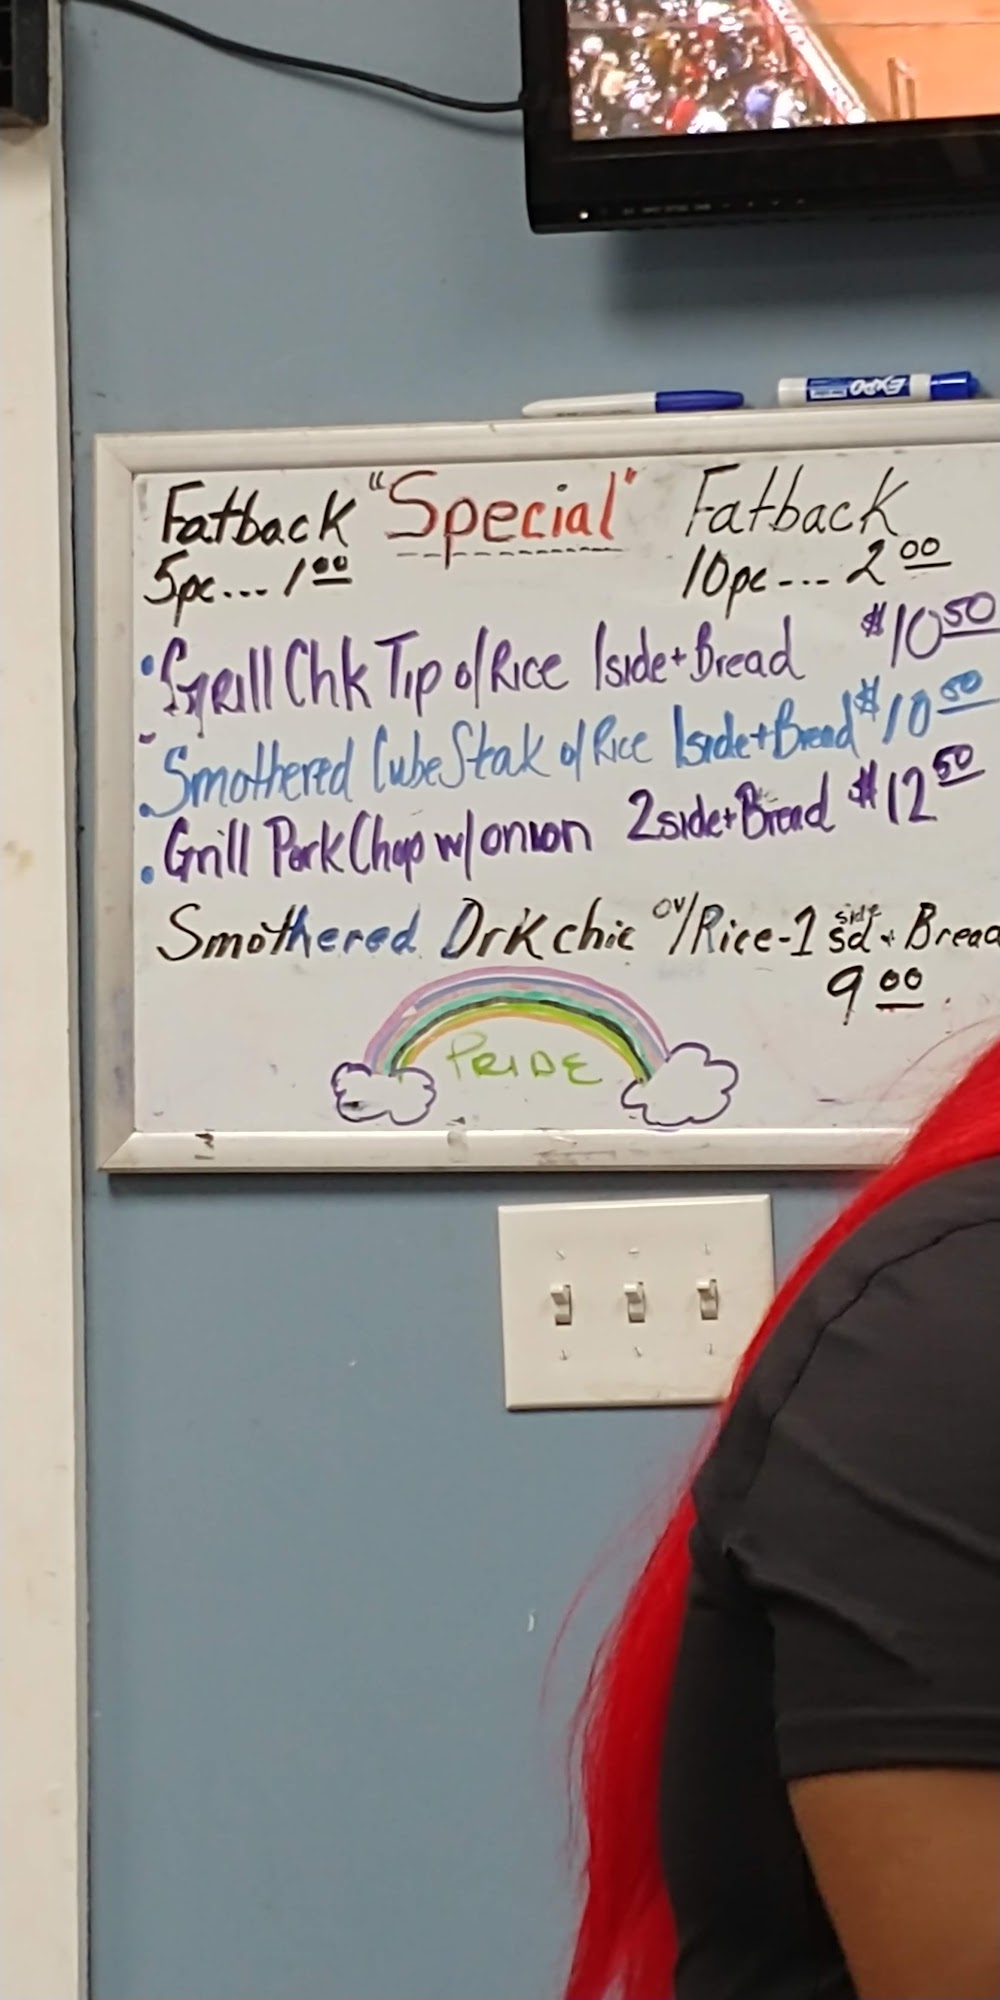 EXPO
Fatback "Special" Fatback
5pc... 1.00 10pc... 2.00
• Grill Chk Tip o/Rice 1side+Bread $10.50
• Smothered CubeStak o/Rice 1side+Bread $10.50
• Grill Pork Chop w/onion 2side+Bread $12.50
Smothered Drk chic ov/Rice-1 side sd + Bread
9.00
PRIDE